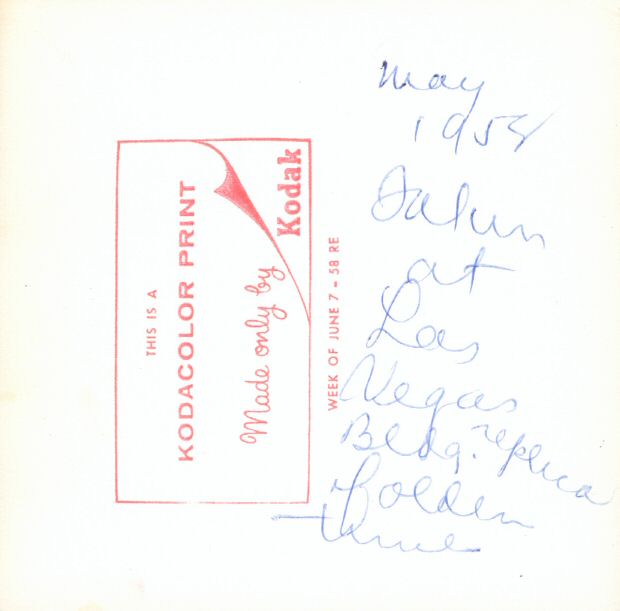 THIS IS A
KODACOLOR PRINT
Made only by
Kodak
WEEK OF JUNE 7 - 58 RE
May
1958
Takun
at
Las
Vegas
Bldg. replica
Golden
time